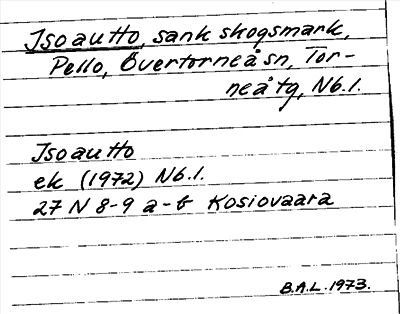 Isoautto, sank skogsmark,
Pello, Övertorneå sn, Tor-
neå tg, Nb.l.
Isoautto
ek (1972) Nb.l.
27 N 8-9 a-b Kosiovaara
B.A.L. 1973.